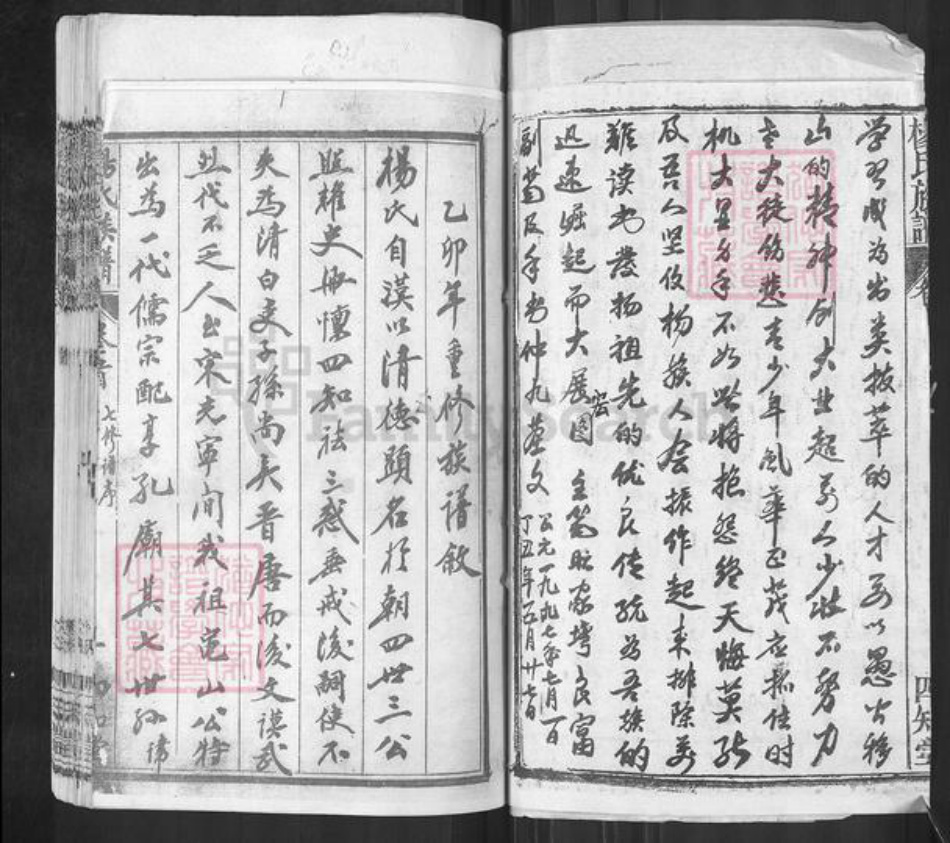 楊氏族譜 卷 四知堂
学習成为出类拔萃的人才要以愚公移
山的精神创大业超前人少壮不努力
老大徒伤悲青少年风華正茂应抓住时
机大显身手不如此将抱怨终天悔莫能
及吾人坚信杨族人会振作起来排除万
难读书發扬祖先的优良传统为吾族的
迅速崛起而大展宏图 主笔 塆良富
副 及手书仲九蓝文 公元一九九七年七月一日
丁丑年五月廿七日
乙卯年重修族譜敘
楊氏自漢以清德顯名於朝四世三公
照耀史冊懷四知祛三惑垂戒後嗣使不
失為清白吏子孫尚矣晋唐而後文謨武
烈代不乏人出宋元寧间我祖龟山公特
出為一代儒宗配享孔廟其七世孙諱
楊氏族譜 卷首 七修譜序 一 四知堂
FamilySearch